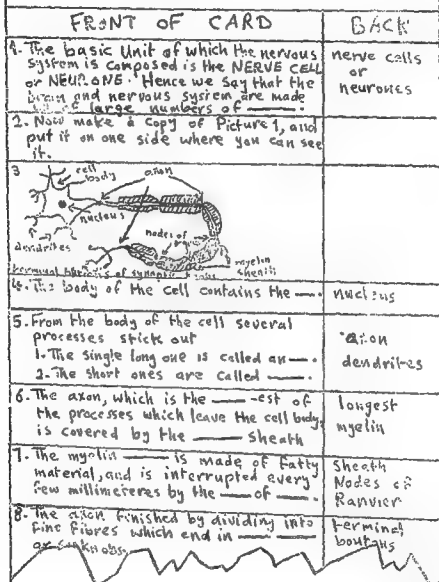 FRONT OF CARD
BACK
1. The basic Unit of which the nervous
system is composed is the NERVE CELL
or NEURONE. Hence we say that the
brain and nervous system are made
large numbers of ——.
nerve cells
or
neurones
2. Now make a copy of Picture 1, and
put it on one side where you can see
it.
3
cell
body
axon
nucleus
dendrites
nodes of
myelin
sheath
of synaptic
4. The body of the cell contains the ——.
nucleus
5. From the body of the cell several
processes stick out
1. The single long one is called an ——.
2. The short ones are called ——.
axon
dendrites
6. The axon, which is the —— -est of
the processes which leave the cell body,
is covered by the —— sheath
longest
myelin
7. The myelin —— is made of fatty
material, and is interrupted every
few millimeteres by the —— of ——.
Sheath
Nodes of
Ranvier
8. The axon finished by dividing into
fine fibres which end in —— ——
or
terminal
boutons